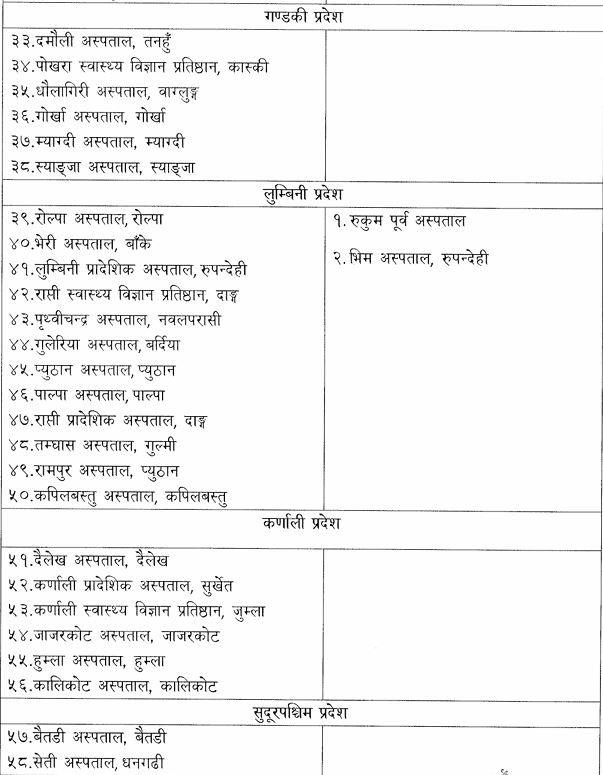 गण्डकी प्रदेश
३३.दमौली अस्पताल, तनहुँ
३४.पोखरा स्वास्थ्य विज्ञान प्रतिष्ठान, कास्की
३५.धौलागिरी अस्पताल, वाग्लुङ्ग
३६.गोर्खा अस्पताल, गोर्खा
३७.म्याग्दी अस्पताल, म्याग्दी
३८.स्याङ्जा अस्पताल, स्याङ्जा
लुम्बिनी प्रदेश
३९.रोल्पा अस्पताल, रोल्पा
४०.भेरी अस्पताल, बाँके
४१.लुम्बिनी प्रादेशिक अस्पताल, रुपन्देही
४२.राप्ती स्वास्थ्य विज्ञान प्रतिष्ठान, दाङ्ग
४३.पृथ्वीचन्द्र अस्पताल, नवलपरासी
४४.गुलेरिया अस्पताल, बर्दिया
४५.प्युठान अस्पताल, प्युठान
४६.पाल्पा अस्पताल, पाल्पा
४७.राप्ती प्रादेशिक अस्पताल, दाङ्ग
४८.तम्घास अस्पताल, गुल्मी
४९.रामपुर अस्पताल, प्युठान
५०.कपिलबस्तु अस्पताल, कपिलबस्तु
१. रुकुम पूर्व अस्पताल
२. भिम अस्पताल, रुपन्देही
कर्णाली प्रदेश
५१.दैलेख अस्पताल, दैलेख
५२.कर्णाली प्रादेशिक अस्पताल, सुर्खेत
५३.कर्णाली स्वास्थ्य विज्ञान प्रतिष्ठान, जुम्ला
५४.जाजरकोट अस्पताल, जाजरकोट
५५.हुम्ला अस्पताल, हुम्ला
५६.कालिकोट अस्पताल, कालिकोट
सुदूरपश्चिम प्रदेश
५७.बैतडी अस्पताल, बैतडी
५८.सेती अस्पताल, धनगढी